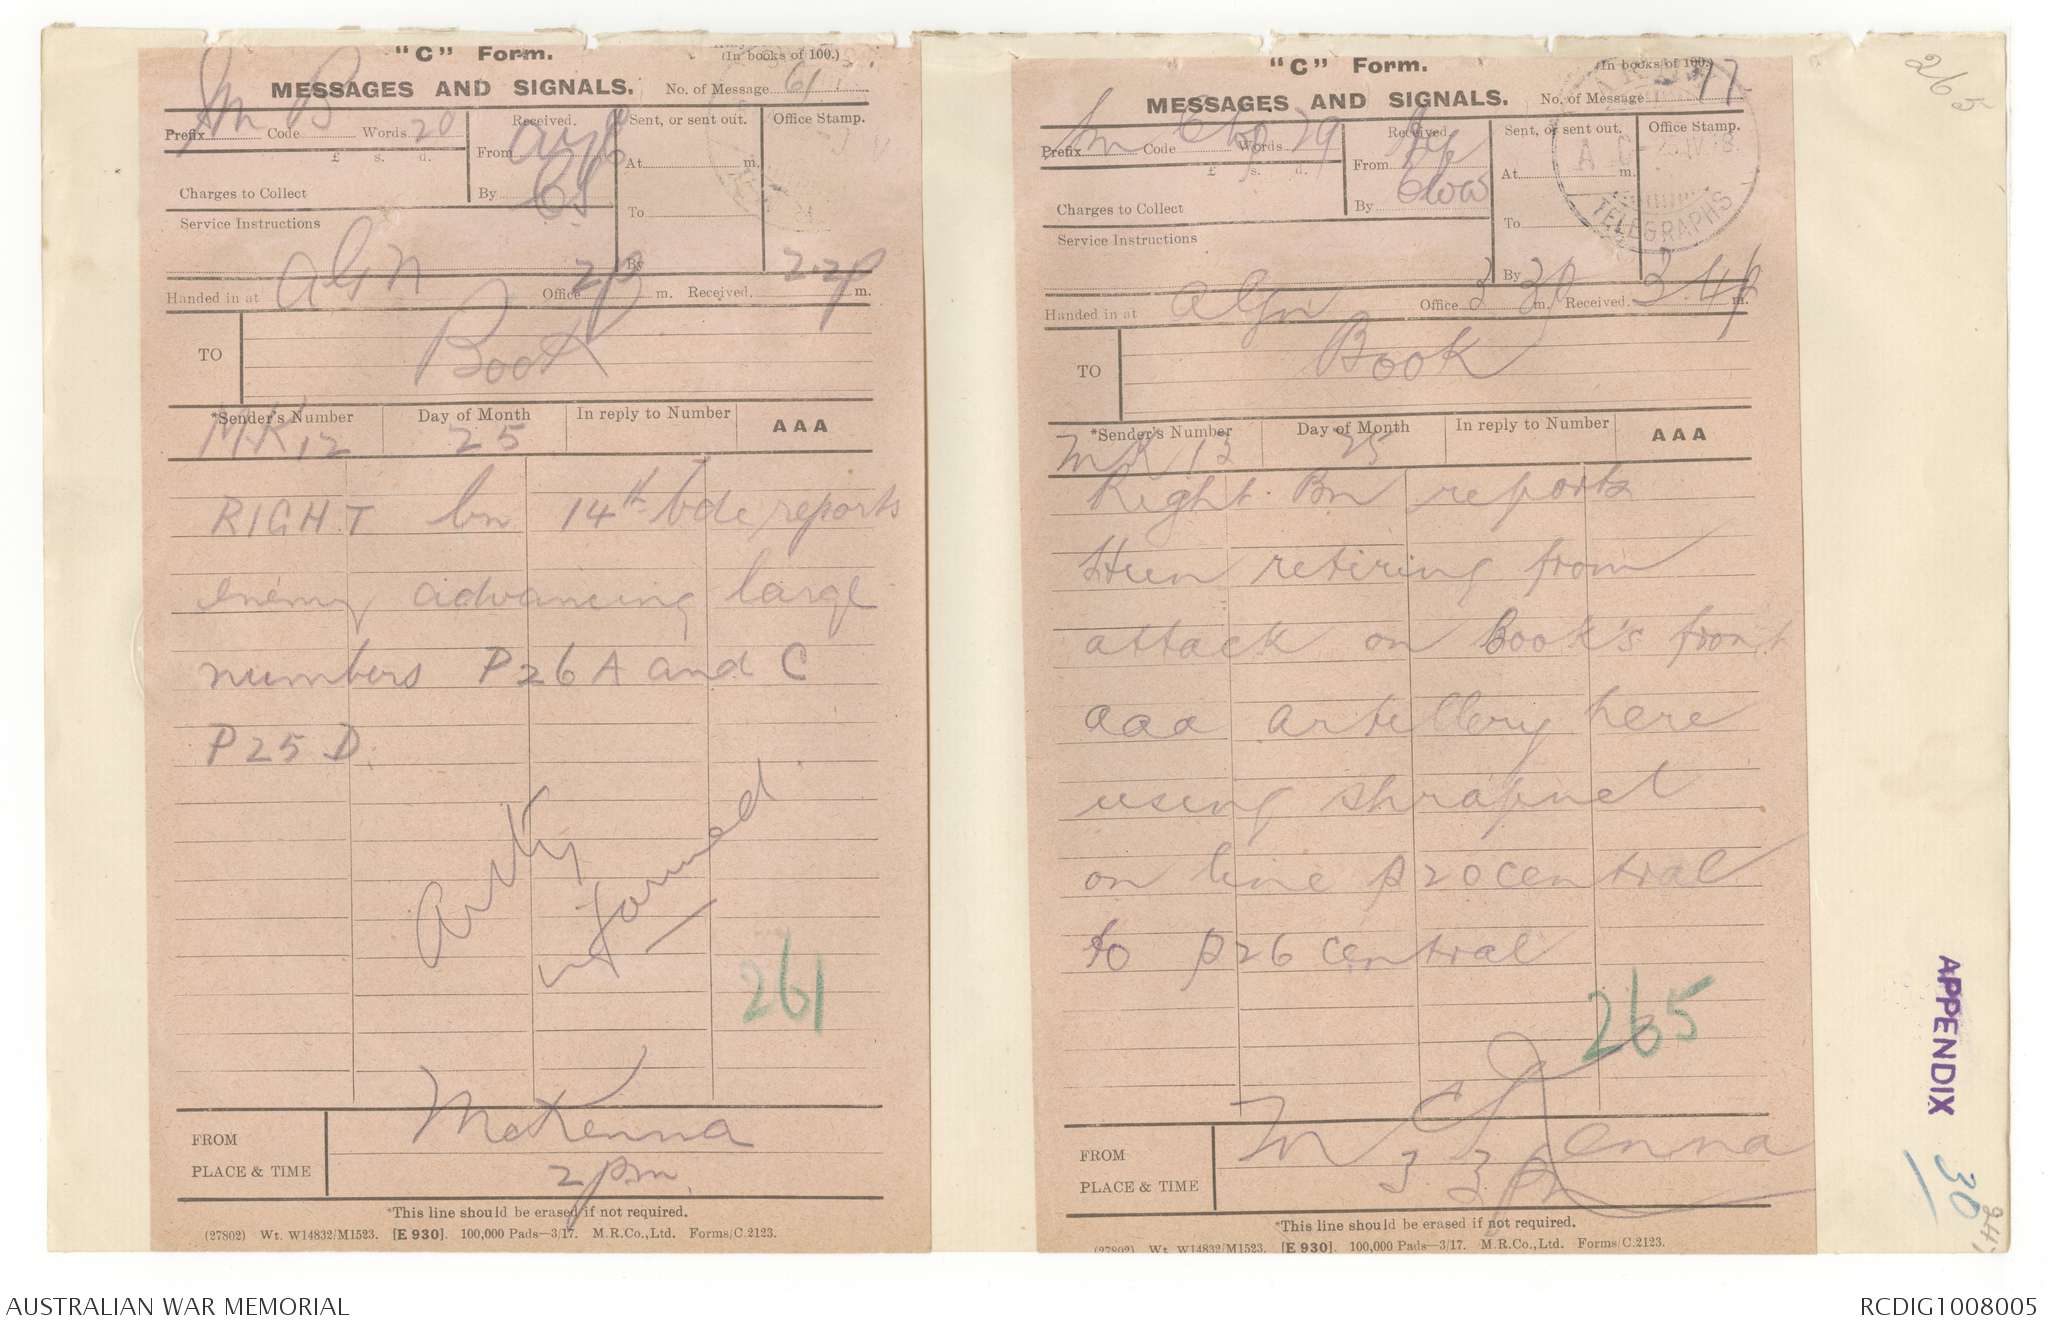 "C" Form.
(In books of 100.)
MESSAGES AND SIGNALS.
No. of Message 61
Prefix Sm Code B Words 20
Received.
Sent, or sent out.
Office Stamp.
£ s. d.
From
At m.
Charges to Collect
By
To
Service Instructions
By
Handed in at AGN Office 2p m. Received 2.2p m.
TO Book
*Sender's Number
Day of Month
In reply to Number
AAA
MK12
25
RIGHT bn 14th bde reports
enemy advancing large
numbers P26 A and C
P25 D.
Arty
informed
261
McKenna
FROM
PLACE & TIME
2pm.
*This line should be erased if not required.
(27802) Wt. W14832/M1523. [E 930]. 100,000 Pads—3/17. M.R.Co., Ltd. Forms/C.2123.
"C" Form.
(In books of 100.)
MESSAGES AND SIGNALS.
No. of Message 77
Prefix Sm Code Words 29
Received
Sent, or sent out.
Office Stamp.
£ s. d.
From
At m.
Charges to Collect
By
To
Service Instructions
By
TELEGRAPHS
Handed in at Office 3 30p m. Received 3.44p m.
TO Book
*Sender's Number
Day of Month
In reply to Number
AAA
MK 13
25
Right Bn reports
Hun retiring from
attack on Book's front
aaa artillery here
using shrapnel
on line P20 central
to P26 central
265
FROM McKenna
PLACE & TIME
3 3p
*This line should be erased if not required.
(27802) Wt. W14832/M1523. [E 930]. 100,000 Pads—3/17. M.R.Co., Ltd. Forms/C.2123.
265
APPENDIX
30
AUSTRALIAN WAR MEMORIAL
RCDIG1008005